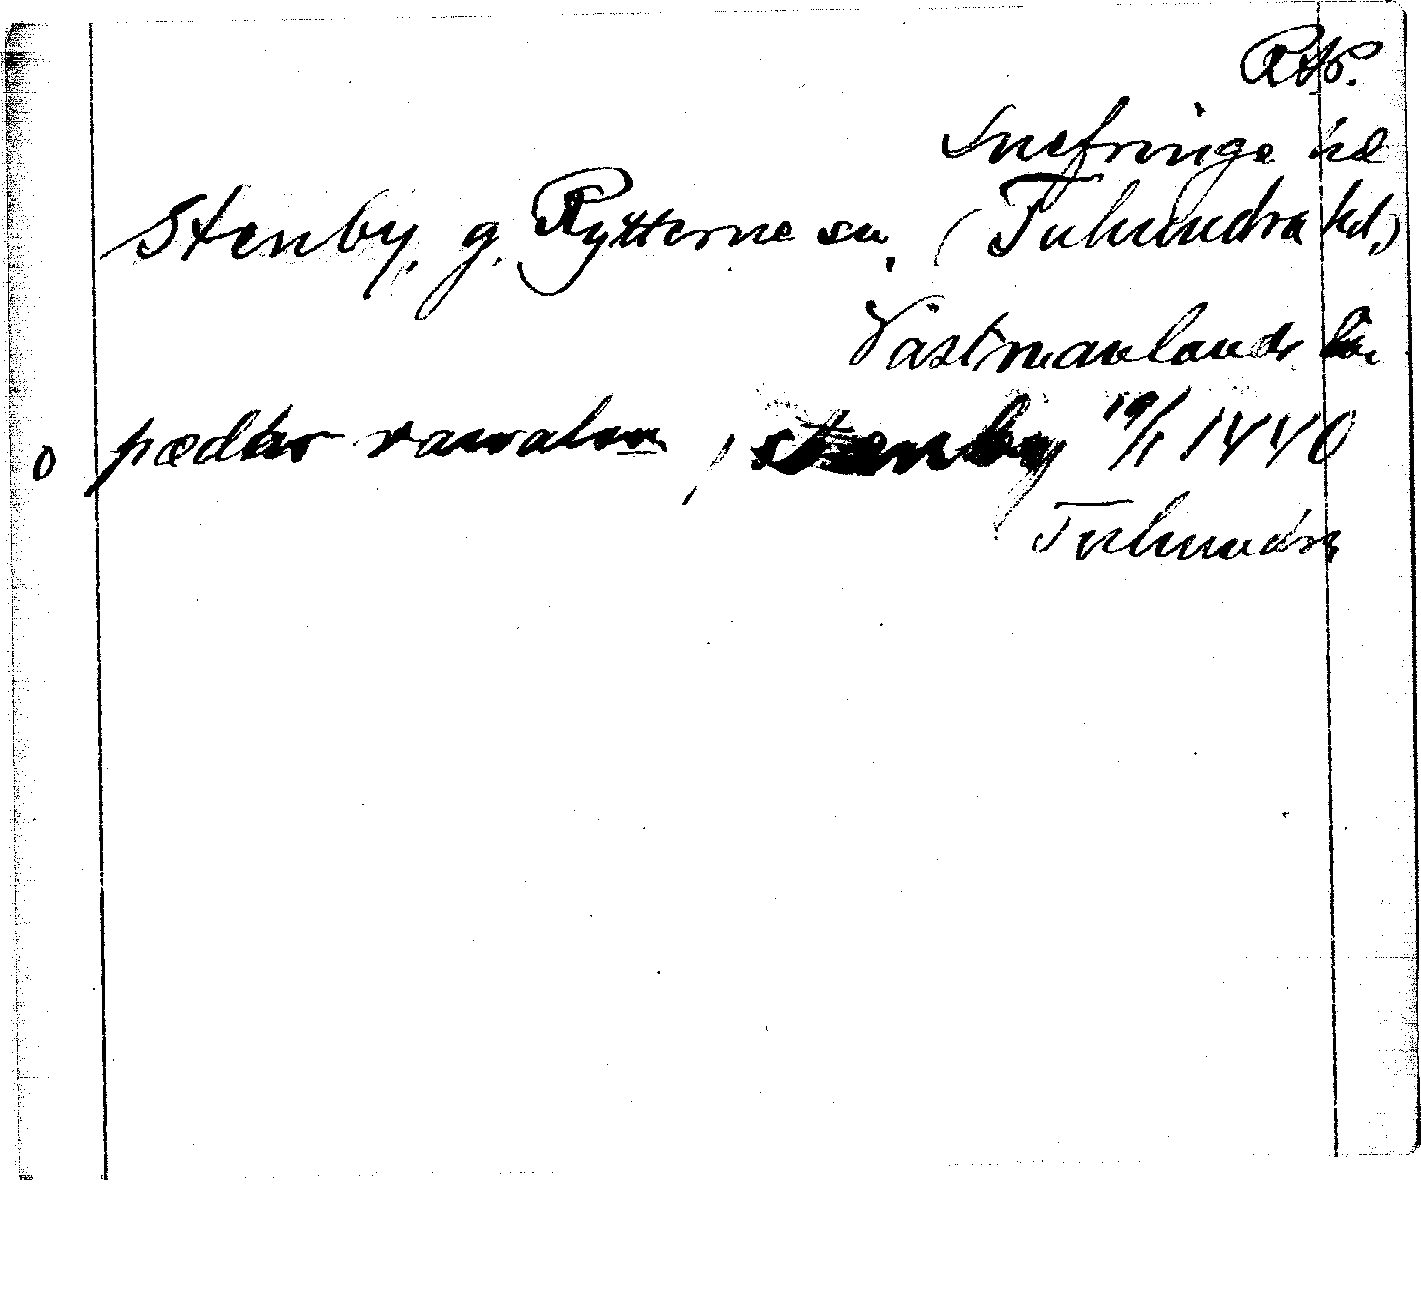 RAp.
Snefringe hd
Stenby, g. Rytterne sn, (Tuhundra hd)
Västmanlands län
o pædhar i stænby 19/1 1440
Tuhundra